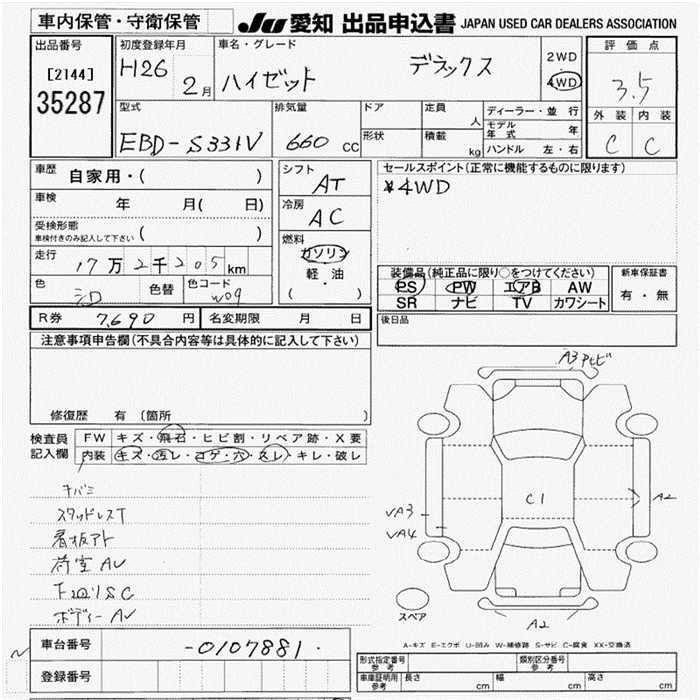 車内保管・守衛保管
JU 愛知 出品申込書 JAPAN USED CAR DEALERS ASSOCIATION
出品番号
[2144]
35287
初度登録年月
H26 2月
車名・グレード
ハイゼット デラックス
2WD
4WD
評価点
3.5
外装 内装
C C
型式
EBD-S331V
排気量
660 cc
ドア
形状
定員 人
積載 kg
ディーラー・並行
モデル年式 年
ハンドル 左・右
車歴
自家用・( )
車検 年 月( 日)
受検形態
車検付きのみ記入して下さい ( )
走行
17万2千205km
色 シロ 色替 色コード W09
シフト
AT
冷房
AC
燃料
ガソリン
軽・油
( ・ )
セールスポイント(正常に機能するものに限ります)
¥4WD
装備品(純正品に限り○をつけてください)
PS PW エアB AW
SR ナビ TV カワシート
新車保証書
有・無
R券 7,690 円 名変期限 月 日
後日品
注意事項申告欄(不具合内容等は具体的に記入して下さい)
修復歴 有 (箇所 )
検査員記入欄
FW キズ・飛石・ヒビ割・リペア跡・X要
内装 キズ・汚レ・コゲ・穴・スレ・キレ・破レ
キバミ
スタッドレスT
看板アト
荷室AU
下回りSC
ボディーAU
A3 サビ
C1
A2
UA3
UA4
スペア
A2
A-キズ E-エクボ U-凹み W-補修跡 S-サビ C-腐食 XX-交換済
車台番号 -0107881.
登録番号
形式指定番号 参考
類別区分番号 参考
車庫証明用 参考 長さ cm 幅 cm 高さ cm